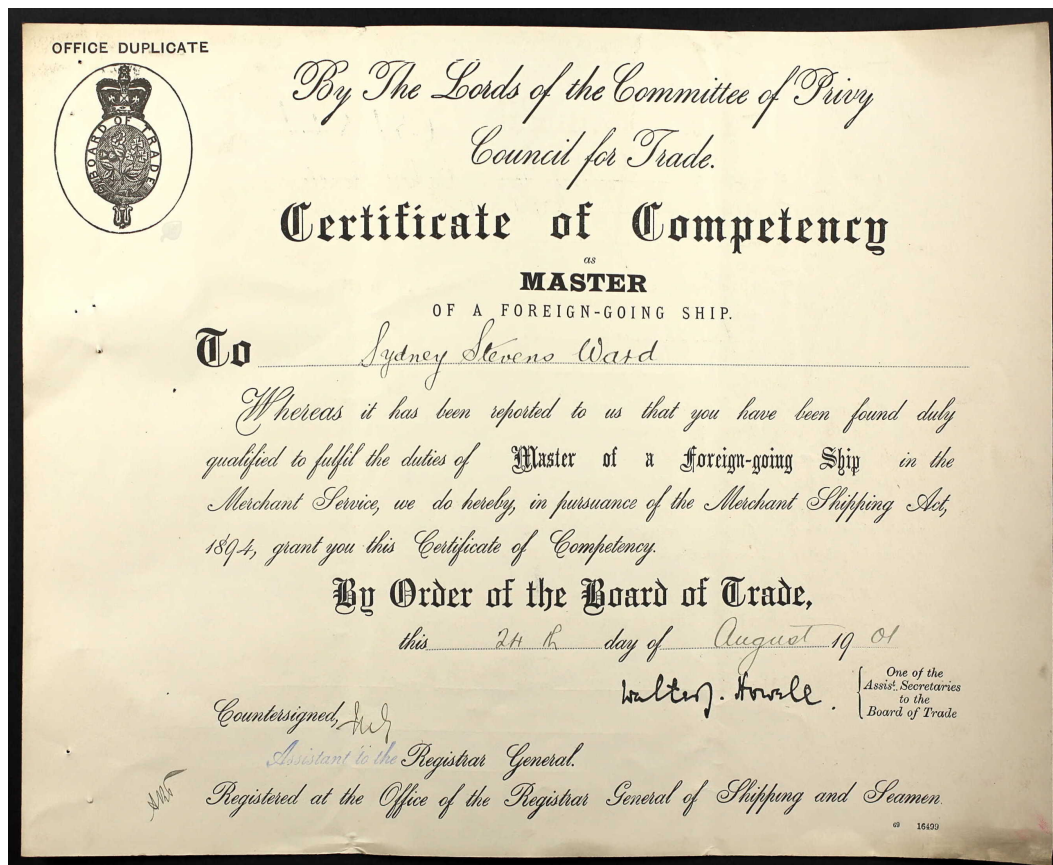 OFFICE DUPLICATE
BOARD OF TRADE
By The Lords of the Committee of Privy
Council for Trade.
Certificate of Competency
as
MASTER
OF A FOREIGN-GOING SHIP.
To Sydney Stevens Ward
Whereas it has been reported to us that you have been found duly
qualified to fulfil the duties of Master of a Foreign-going Ship in the
Merchant Service, we do hereby, in pursuance of the Merchant Shipping Act,
1894, grant you this Certificate of Competency.
By Order of the Board of Trade,
this 24th day of August 1901
Walter J. Howell.
One of the
Assist. Secretaries
to the
Board of Trade
Countersigned,
Assistant to the Registrar General.
Registered at the Office of the Registrar General of Shipping and Seamen.
16499